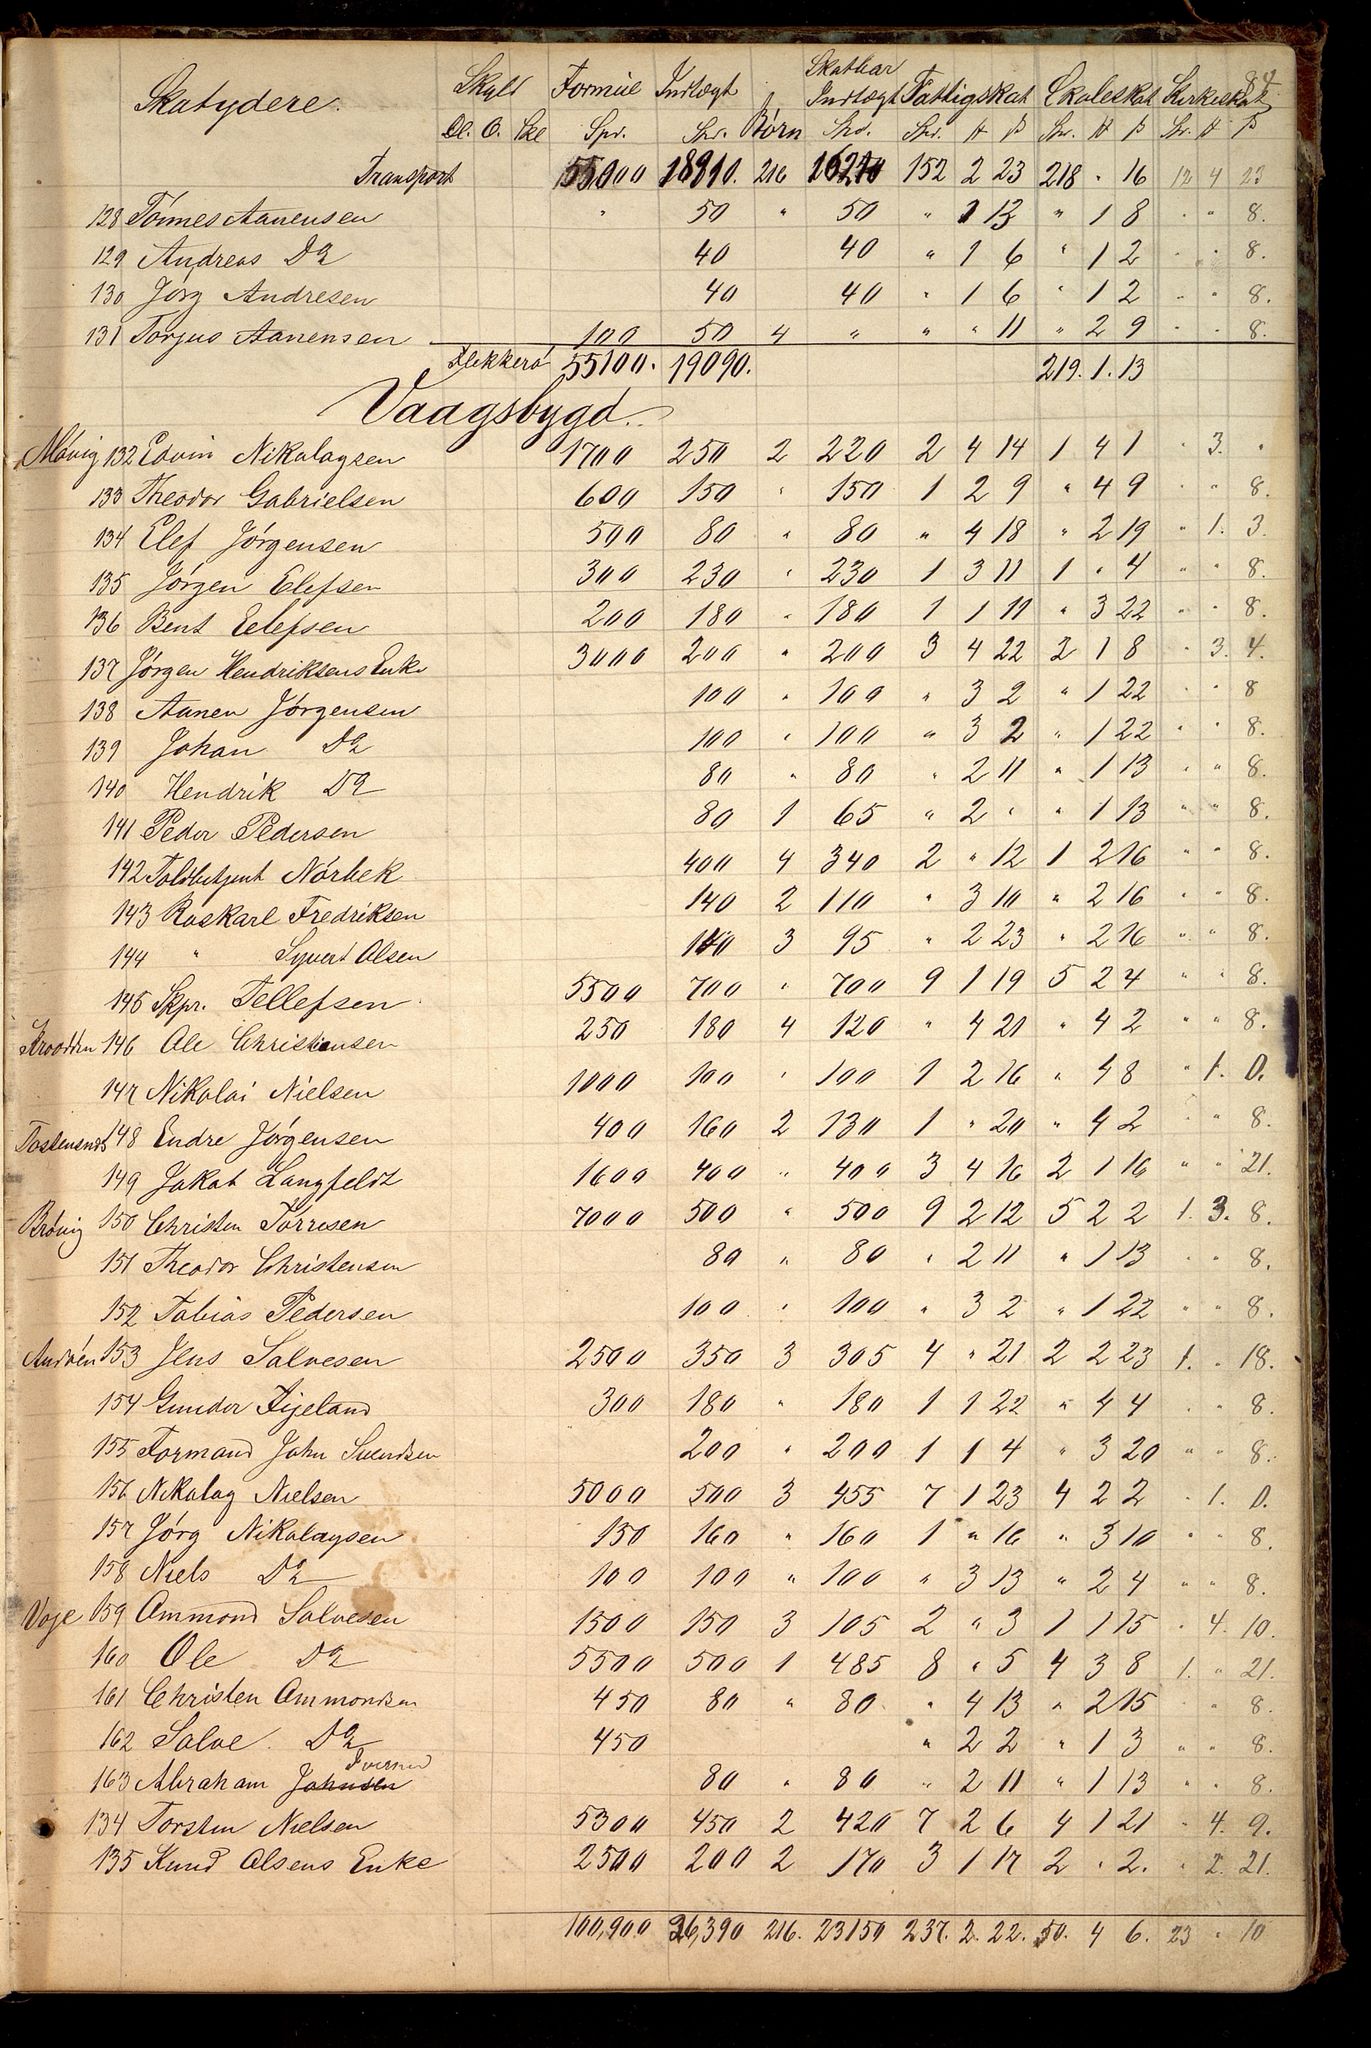 84.
Skatydere. Skyld Formue Indtægt Børn Skatbar Indtægt Fattigskat Skoleskat Kirkeskat
Dl. O. Skl Spd. Spd. Spd. Spd. # ß Spd. # ß Spd. # ß
Transport 55000 18910. 216 16270 152 2 23 218 " 16 12 4 23
128 Tönnes Aanensen " 50 " 50 " 1 13 " 1 8 " " 8.
129 Andreas Do 40 40 " 1 6 " 1 2 " " 8.
130 Jörg Andresen 40 40 " 1 6 " 1 2 " " 8.
131 Torjus Aanensen 100 50 4 " " " 11 " 2 9 " " 8.
Flekkerö 55100. 19090. 219. 1. 13
Vaagsbygd.
Møvig 132 Edvin Nikolaysen 1700 250 2 220 2 4 14 1 4 1 " 3. "
133 Theodor Gabrielsen 600 150 " 150 1 2 9 " 4 9 " " 8.
134 Elef Jørgensen 500 80 " 80 " 4 18 " 2 19 " 1. 3.
135 Jørgen Elefsen 300 230 " 230 1 3 11 1 " 4 " " 8.
136 Bent Eelefsen 200 180 " 180 1 1 11 " 3 22 " " 8.
137 Jørgen Hendriksens Enke 3000 200 " 200 3 4 22 2 1 8 " 3. 4.
138 Aanen Jørgensen 100 " 100 " 3 2 " 1 22 " " 8
139 Johan Do 100 " 100 " 3 2 " 1 22 " " 8.
140 Hendrik Do 80 " 80 " 2 11 " 1 13 " " 8.
141 Peder Pedersen 80 1 65 " 2 " " 1 13 " " 8.
142 Toldbetjent Nørbek 400 4 340 2 " 12 1 2 16 " " 8.
143 Roskarl Fredriksen 140 2 110 " 3 10 " 2 16 " " 8.
144 " Syvert Olsen 140 3 95 " 2 23 " 2 16 " " 8.
145 Skpr. Tellefsen 5500 700 " 700 9 1 19 5 2 4 " " 8.
Kroodden 146 Ole Christiansen 250 180 4 120 " 4 21 " 4 2 " " 8.
147 Nikolai Nielsen 1000 100 " 100 1 2 16 " 4 8 " 1. 0.
148 Endre Jørgensen 400 160 2 130 1 " 20 " 4 2 " " 8.
149 Jakob Langfeldt 1600 400 " 400 3 4 16 2 1 16 " " 21.
Brøvig 150 Christen Torresen 7000 500 " 500 9 2 12 5 2 2 1. 3. 8.
151 Theodor Christensen 80 " 80 " 2 11 " 1 13 " " 8.
152 Tobias Pedersen 100 " 100 " 3 2 " 1 22 " " 8.
Andøen 153 Jens Salvesen 2500 350 3 305 4 " 21 2 2 23 1. " 18.
154 Gunder Fijeland 300 180 " 180 1 1 22 " 4 4 " " 8.
155 Formand John Svendsen 200 " 200 1 1 4 " 3 20 " " 8.
156 Nikolay Nielsen 5000 500 3 455 7 1 23 4 2 2 " 1. 0.
157 Jörg Nikolaysen 150 160 " 160 1 " 16 " 3 10 " " 8.
158 Niels Do 100 100 " 100 " 3 13 " 2 4 " " 8.
Voje 159 Ammond Salvesen 1500 150 3 105 2 " 3 1 1 15 " 4. 10.
160 Ole Do 5500 500 1 485 8 " 5 4 3 8 1. " 21.
161 Christen Ammondsen 450 80 " 80 " 4 13 " 2 15 " " 8.
162 Salve Do 450 " 2 2 " 1 3 " " 8.
Iversen
163 Abraham Johnsen 80 " 80 " 2 11 " 1 13 " " 8.
134 Torsten Nielsen 5300 450 2 420 7 2 6 4 1 21 " 4. 9.
135 Knud Olsens Enke 2500 200 2 170 3 1 17 2 " 2. " 2. 21.
100,900 26,390 216. 23150 237. 2. 22. 50. 4 6. 23 " 10